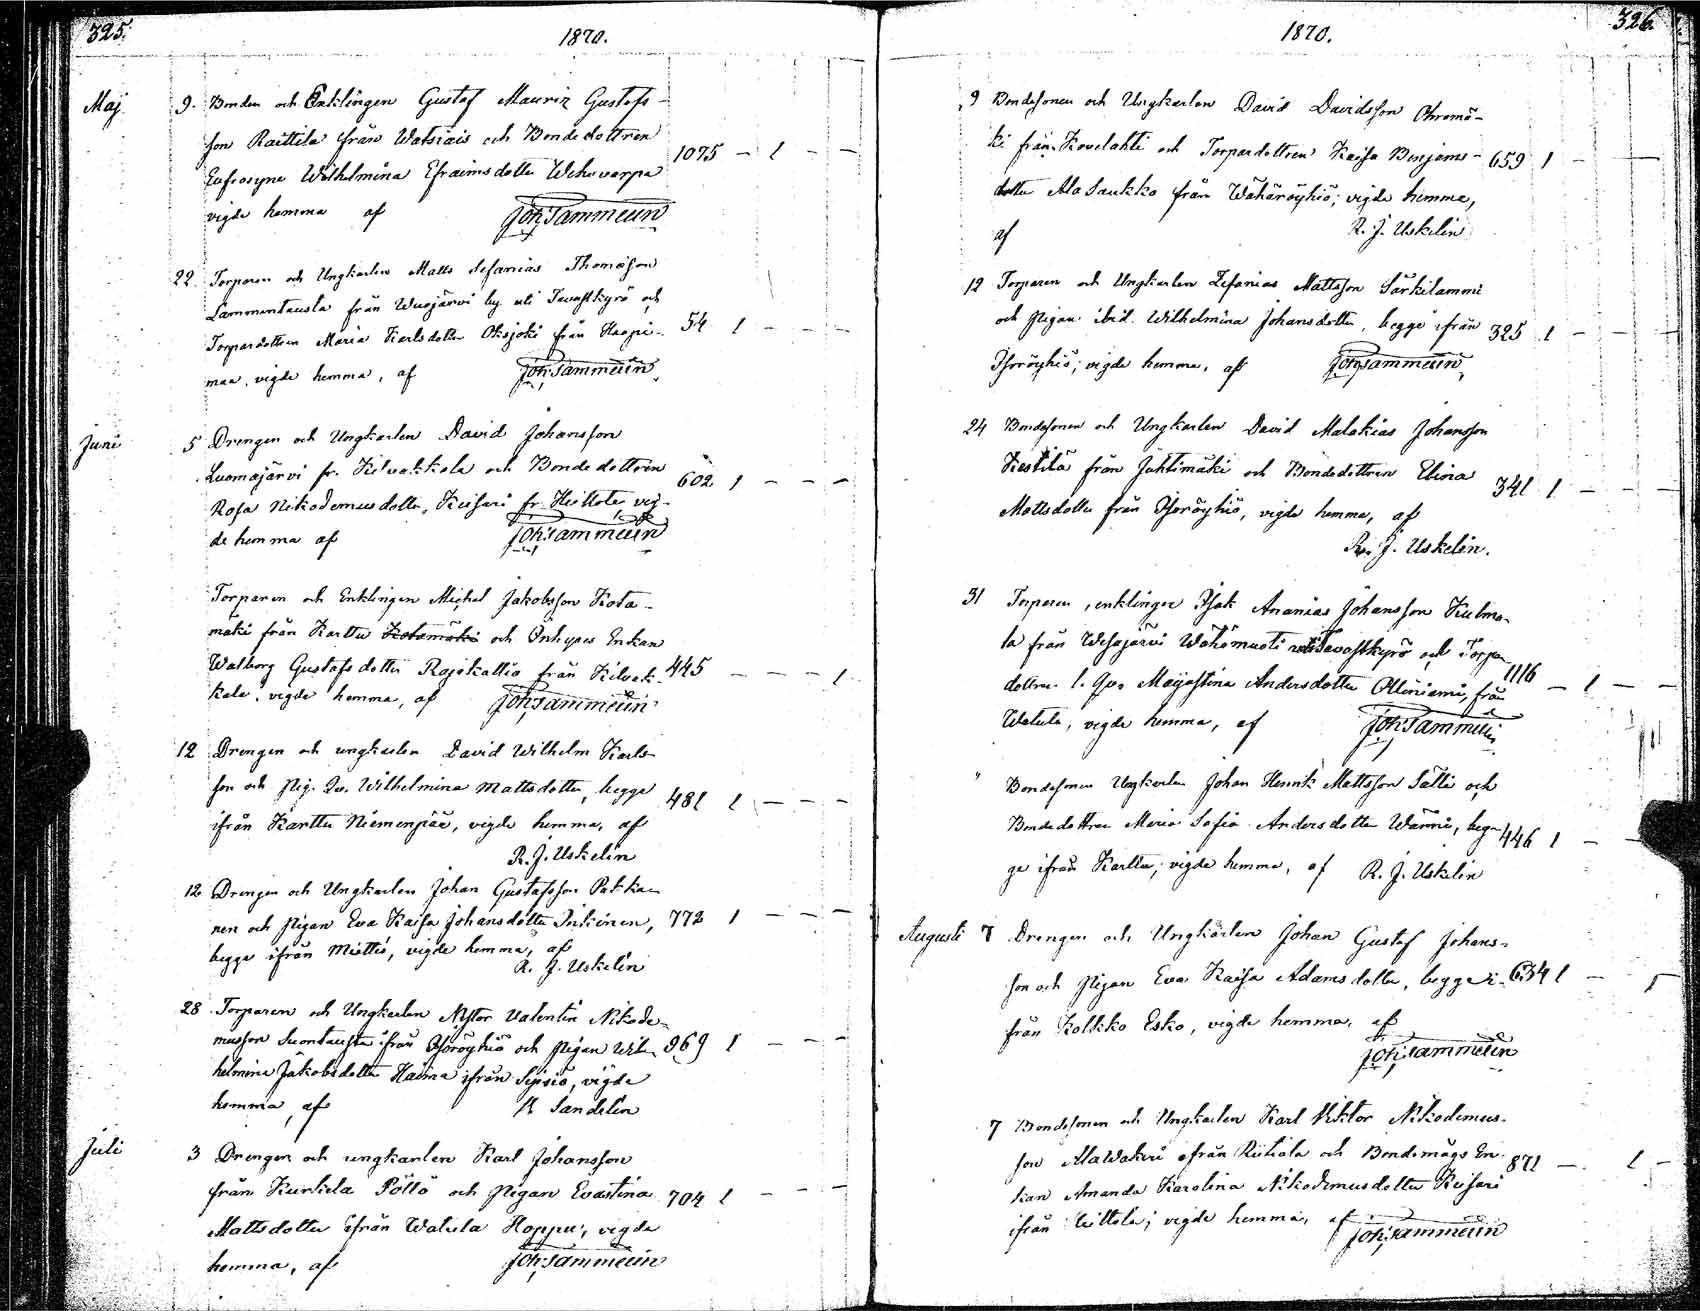 325.
1870.
Maj 9. Bonden och Enklingen Gustaf Mauriz Gustafs-
son Raittila från Watsiais och Bondedottren
Eufrosyne Wilhelmina Efraimsdotter Wehuvarpa 1075 – 1 – –
vigde hemma af Joh: Tammelin
22 Torparen och Ungkarlen Matts Sefanias Thomasson
Lammentausta från Wuojärvi by uti Tavastkyrö och
Torpardottren Maria Karlsdotter Oksjoki från Haapi- 54 1 – – –
maa, vigde hemma, af Joh: Tammelin
Juni 5 Drengen och Ungkarlen David Johansson
Luomajärvi fr. Kilvakkala och Bondedottren
Rosa Nikodemusdotter Keisari fr. Heittola vig- 602 1 – – –
de hemma af Joh: Tammelin
Torparen och Enklingen Michel Jakobsson Kota-
mäki från Karttu Kotamäki och Inhyses Enkan
Walborg Gustafsdotter Rajakallio från Kilvak- 445 – – – 1
kala, vigde hemma, af Joh: Tammelin
12 Drengen och ungkarlen David Wilhelm Karls-
son och Pig. Qv. Wilhelmina Mattsdotter, begge
ifrån Karttu Niemenpää, vigde hemma, af 481 1 – – –
R. J. Uskelin
12 Drengen och Ungkarlen Johan Gustafsson Pakka-
nen och Pigan Eva Kaisa Johansdotter Inkinen, 772 1 – – –
begge ifrån Miettis, vigde hemma, af
R. J. Uskelin
28 Torparen och Ungkarlen Nestor Valentin Nikode-
musson Suontausta ifrån Osoröyhiö och Pigan Wil- 969 1 – – –
helmina Jakobsdotter Haima ifrån Sisiö, vigde
hemma, af K Sandelin
Juli 3 Drengen och ungkarlen Karl Johansson
från Kurkela Pöllö och Pigan Evastina 704 1 – – –
Mattsdotter ifrån Watula Hoppu, vigde
hemma, af Joh: Tammelin
1870.
326.
9 Bondesonen och Ungkarlen David Davidsson Ohramä-
ki från Kovelahti och Torpardottren Kaisa Benjams- 659 1 – –
dotter Ala Saukko från Wähäröyhiö; vigde hemma,
af R. J. Uskelin
12 Torparen och Ungkarlen Zefanias Mattsson Särkilammi
och Pigan ibid. Wilhelmina Johansdotter, begge ifrån 325 1 – – –
Isoröyhiö; vigde hemma, af Joh: Tammelin
24 Bondesonen och Ungkarlen David Malakias Johansson
Kestilä från Juhtimäki och Bondedottren Elina
Mattsdotter från Isoröyhiö, vigde hemma, af 341 1 – – –
R. J. Uskelin.
31 Torparen, enklingen Isak Ananias Johansson Kulma-
la från Wesajärvi Wähämusti uti Tavastkyrö och Torpar
dottren l. Qvo Maijastina Andersdotter Olliniemi, från 1116 – 1 – –
Watula, vigde hemma, af Joh: Tammelin
" Bondesonen Ungkarlen Johan Henrik Mattsson Sälli och
Bondedottren Maria Sofia Andersdotter Wänni, beg- 446 1 – –
ge ifrån Karttu; vigde hemma, af R. J. Uskelin
Augusti 7 Drengen och Ungkarlen Johan Gustaf Johans-
son och Pigan Eva Kaisa Adamsdotter, begge i- 634 1 –
från Kolkko Esko, vigde hemma, af
Joh: Tammelin
7 Bondesonen och Ungkarlen Karl Viktor Nikodemus-
son Alawakeri ifrån Riitiala och Bondemågs En-
kan Amanda Karolina Nikodemusdotter Keisari 871 – 1 –
ifrån Heittola; vigde hemma, af Joh: Tammelin